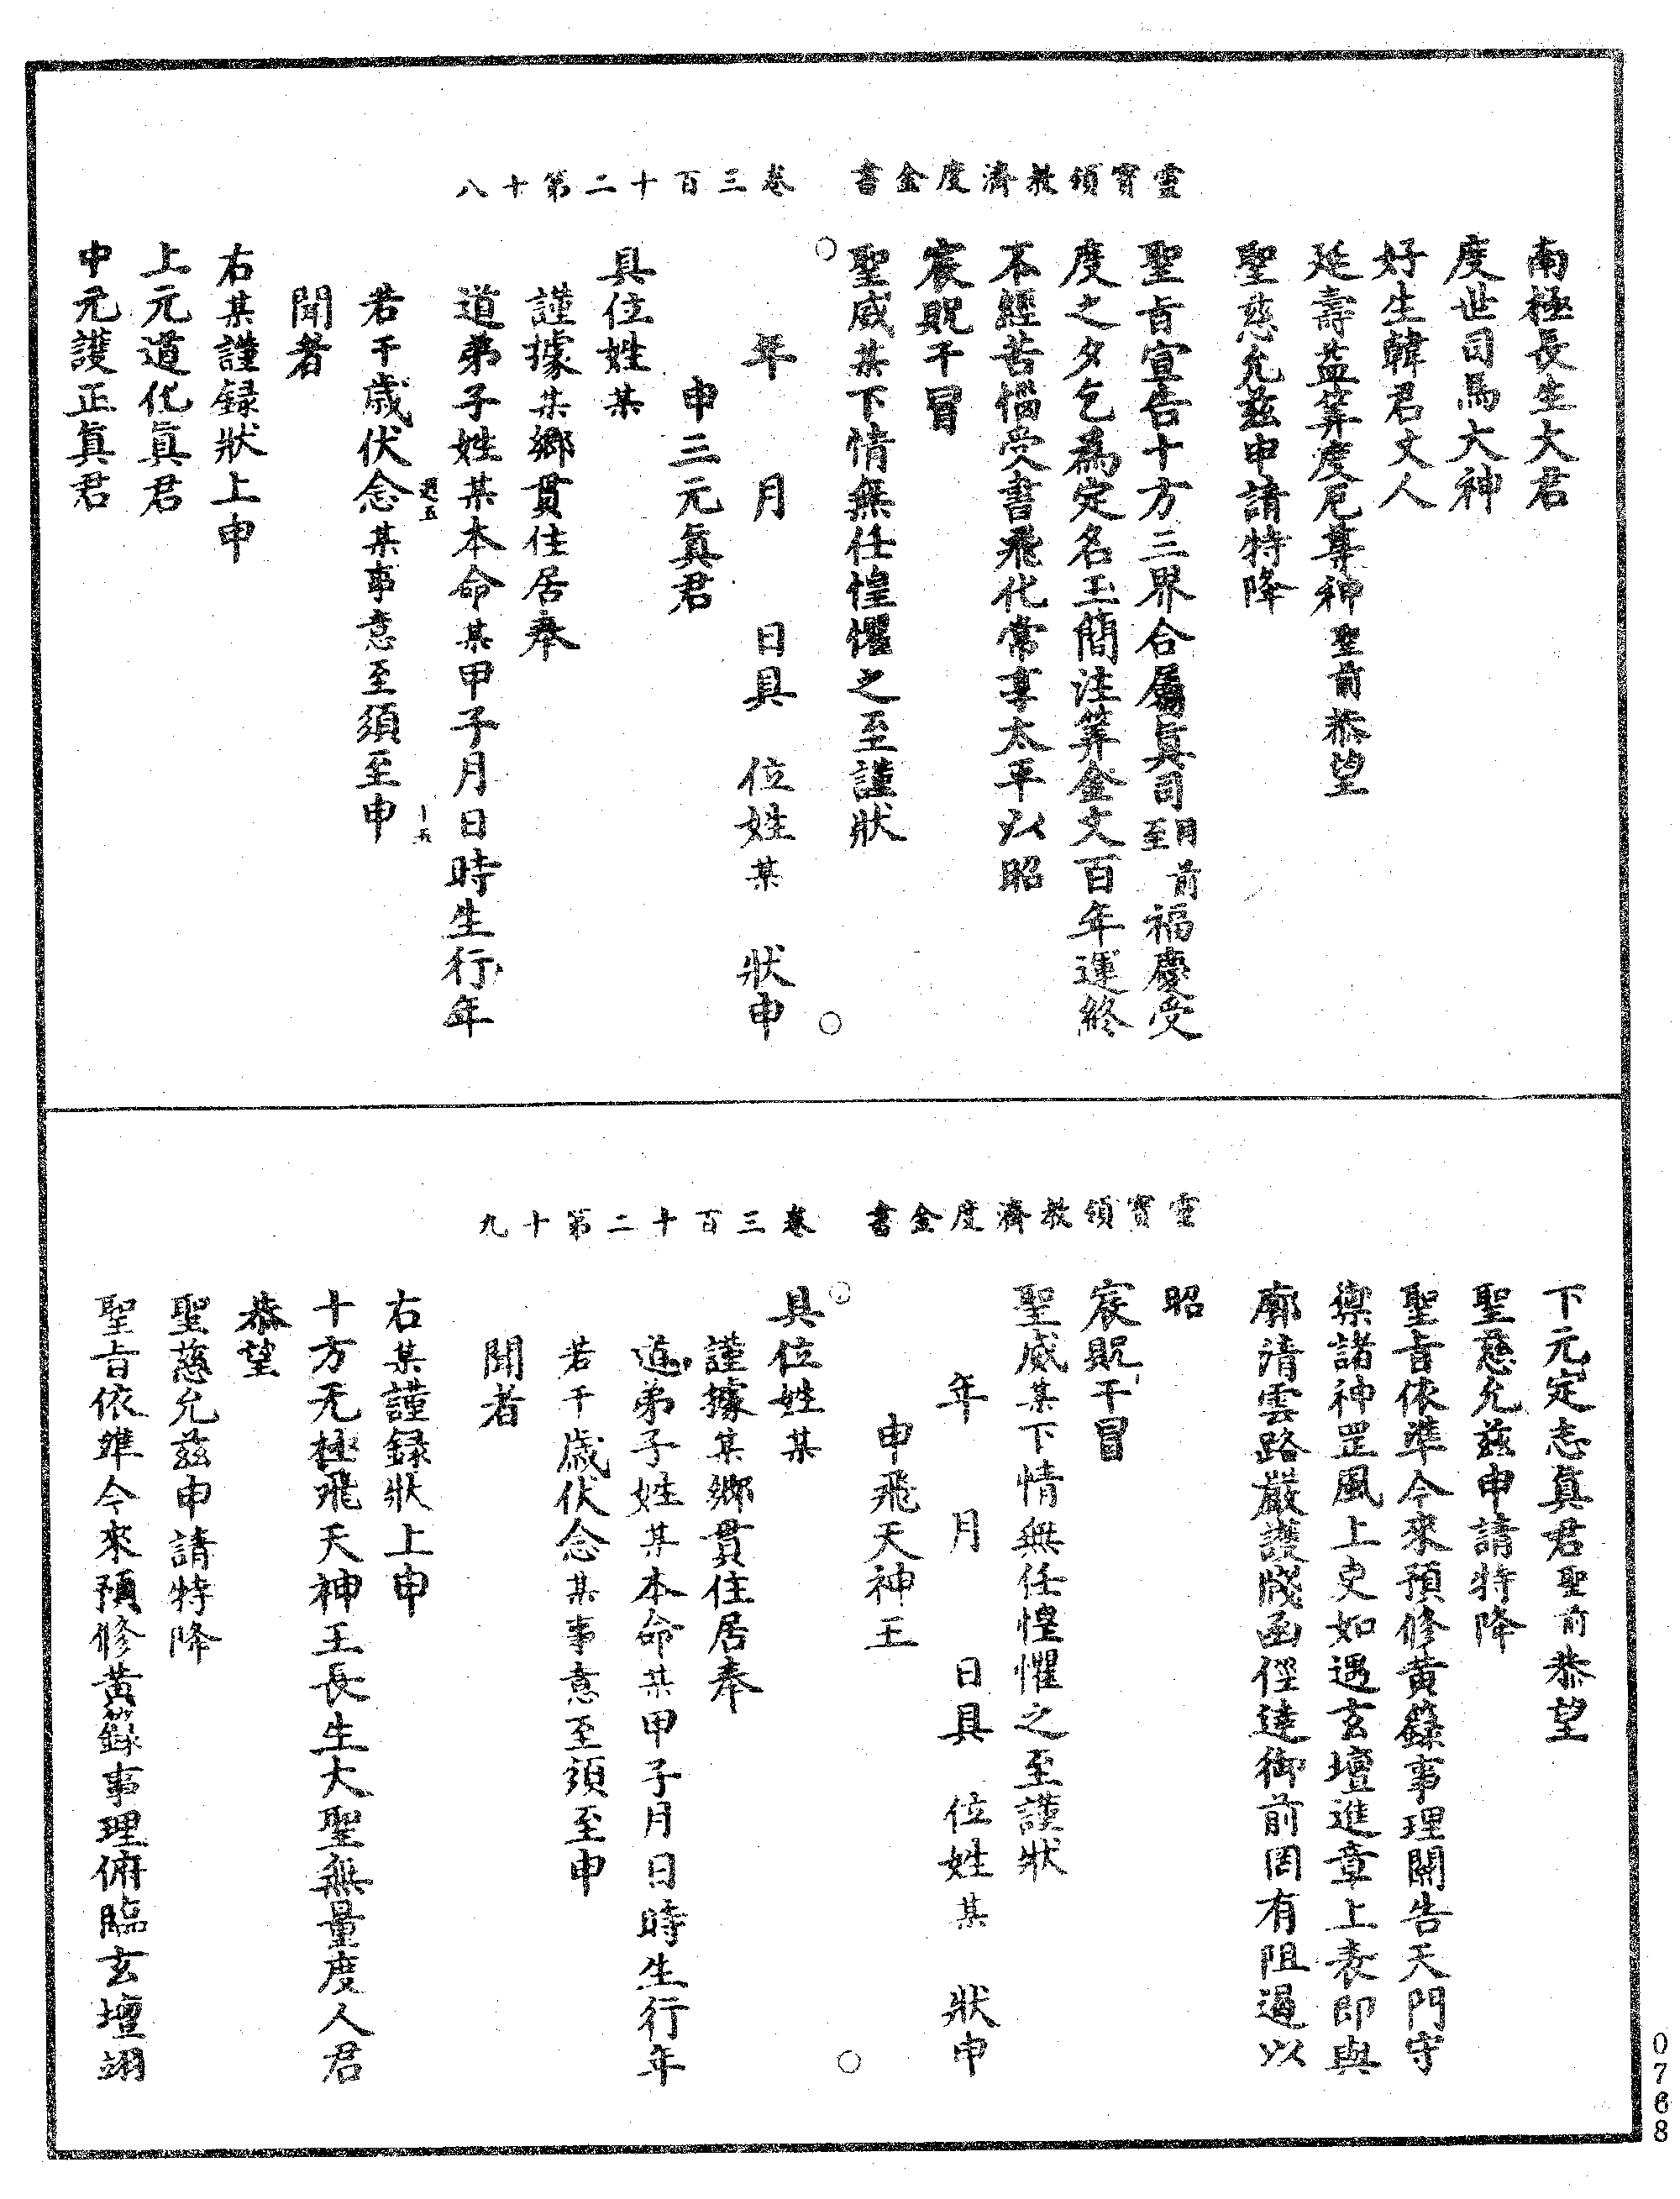 靈寶領教濟度金書　卷三百十二第十八
南極長生大君
度世司馬大神
好生韓君丈人
延壽益筭度厄尊神聖前恭望
聖慈允茲申請特降
聖旨宣告十方三界合屬眞司至同前福慶受
度之夕乞爲定名玉簡注筭金文百年運終
不經苦惱受書飛化常享太平以昭
宸貺干冒
聖威某下情無任惶懼之至謹狀
○　○
年　月　日具　位姓某　狀申
申三元眞君
具位姓某
謹據某鄉貫住居奉
道弟子姓某本命某甲子月日時生行年
若干歲伏念某事意至須至申
聞者
右某謹録狀上申
上元道化眞君
中元護正眞君
靈寶領教濟度金書　卷三百十二第十九
下元定志眞君聖前恭望
聖慈允茲申請特降
聖旨依準今來預修黃籙事理關告天門守
禦諸神罡風上吏如遇玄壇進章上表即與
廓清雲路嚴護牋函徑達御前罔有阻遏以
昭
宸貺干冒
聖威某下情無任惶懼之至謹狀
年　月　日具　位姓某　狀申
申飛天神王
○　○
具位姓某
謹據某鄉貫住居奉
道弟子姓某本命某甲子月日時生行年
若干歲伏念某事意至須至申
聞者
右某謹録狀上申
十方无極飛天神王長生大聖無量度人君
恭望
聖慈允茲申請特降
聖旨依準今來預修黃籙事理俯臨玄壇翊
0768